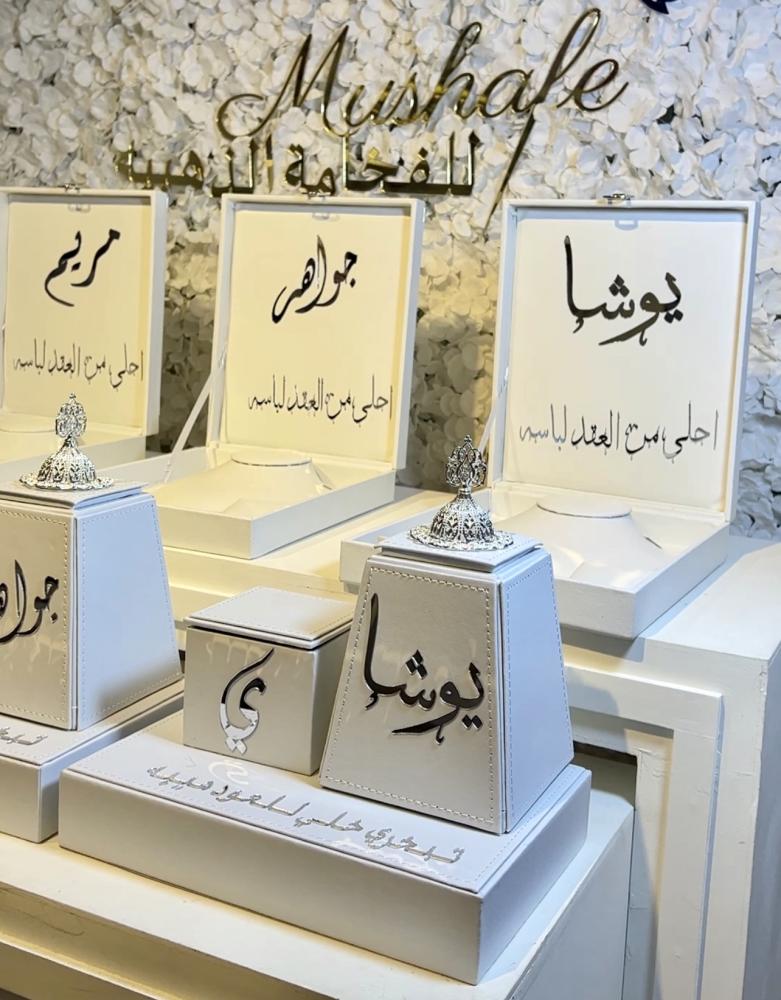 Mushafe
للفخامة الذهبية
مريم
احلى من العقد لباسه
جواهر
احلى من العقد لباسه
يوشا
احلى من العقد لباسه
جواهر
ي
يوشا
تبخري خلي للعود هيبه